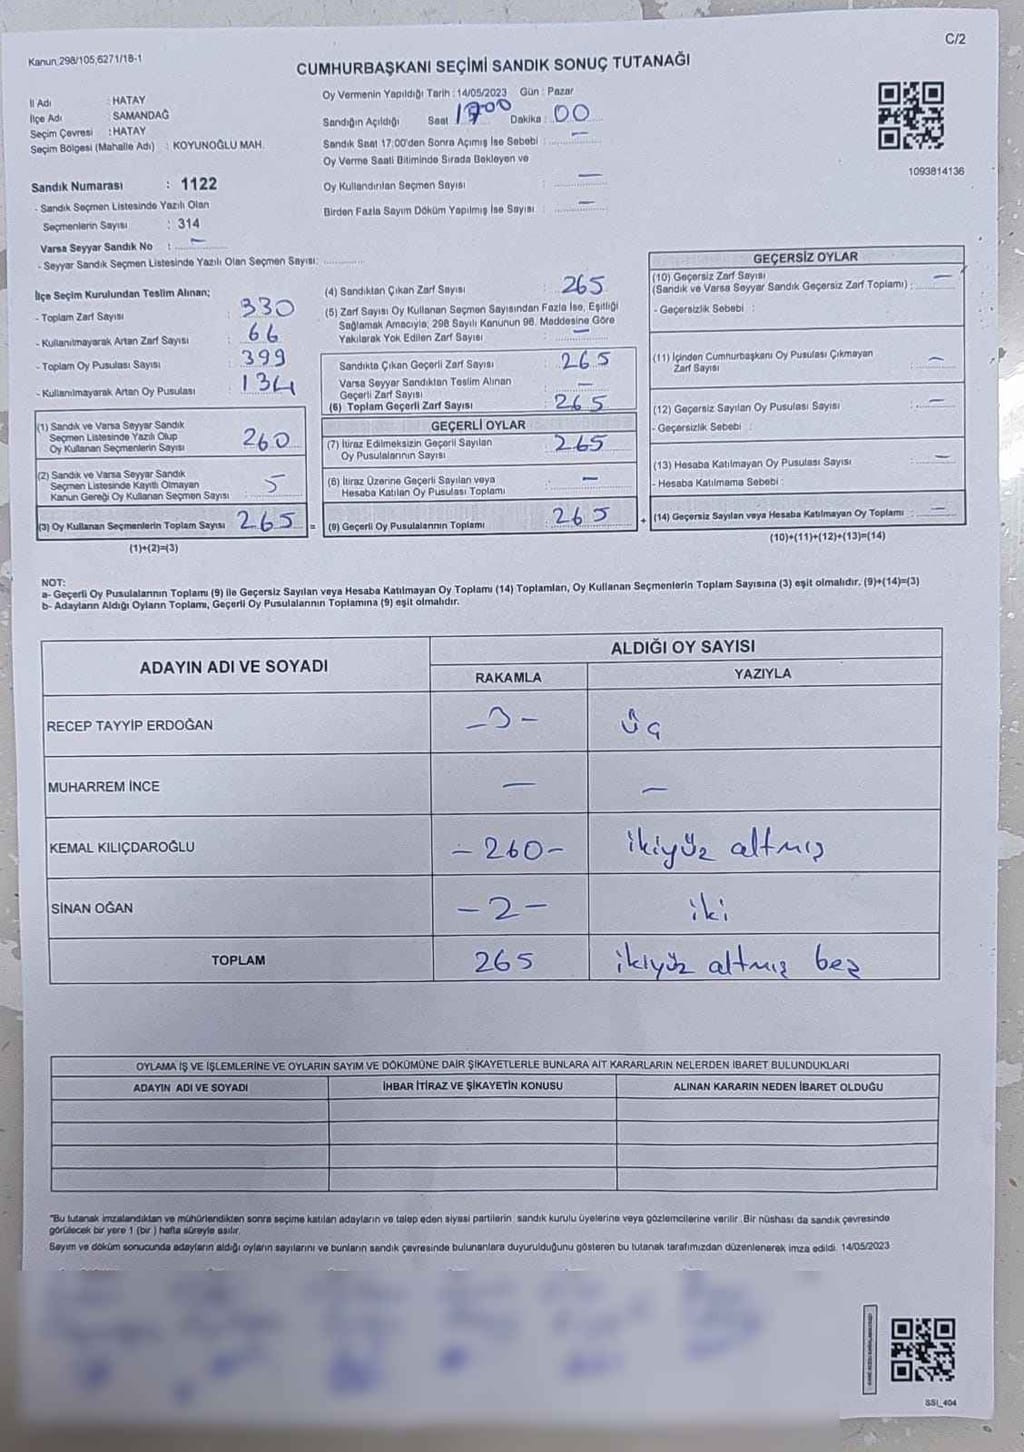 C/2
Kanun 298/105,6271/18-1
CUMHURBAŞKANI SEÇİMİ SANDIK SONUÇ TUTANAĞI
İl Adı : HATAY
İlçe Adı : SAMANDAĞ
Seçim Çevresi : HATAY
Seçim Bölgesi (Mahalle Adı) : KOYUNOĞLU MAH.
Sandık Numarası : 1122
- Sandık Seçmen Listesinde Yazılı Olan
Seçmenlerin Sayısı : 314
Varsa Seyyar Sandık No : —
- Seyyar Sandık Seçmen Listesinde Yazılı Olan Seçmen Sayısı: ............
Oy Vermenin Yapıldığı Tarih : 14/05/2023 Gün : Pazar
Sandığın Açıldığı Saat 17:00 Dakika : 00
Sandık Saat 17:00'den Sonra Açımış İse Sebebi : —
Oy Verme Saati Bitiminde Sırada Bekleyen ve
Oy Kullandırılan Seçmen Sayısı : —
Birden Fazla Sayım Döküm Yapılmış İse Sayısı : —
1093814136
İlçe Seçim Kurulundan Teslim Alınan;
- Toplam Zarf Sayısı : 330
- Kullanılmayarak Artan Zarf Sayısı : 66
- Toplam Oy Pusulası Sayısı : 399
- Kullanılmayarak Artan Oy Pusulası : 134
(1) Sandık ve Varsa Seyyar Sandık
Seçmen Listesinde Yazılı Olup
Oy Kullanan Seçmenlerin Sayısı 260
(2) Sandık ve Varsa Seyyar Sandık
Seçmen Listesinde Kayıtlı Olmayan
Kanun Gereği Oy Kullanan Seçmen Sayısı 5
(3) Oy Kullanan Seçmenlerin Toplam Sayısı 265 =
(1)+(2)=(3)
(4) Sandıktan Çıkan Zarf Sayısı : 265
(5) Zarf Sayısı Oy Kullanan Seçmen Sayısından Fazla İse, Eşitliği
Sağlamak Amacıyla; 298 Sayılı Kanunun 98. Maddesine Göre
Yakılarak Yok Edilen Zarf Sayısı : —
Sandıkta Çıkan Geçerli Zarf Sayısı : 265
Varsa Seyyar Sandıktan Teslim Alınan
Geçerli Zarf Sayısı : —
(6) Toplam Geçerli Zarf Sayısı : 265
GEÇERLİ OYLAR
(7) İtiraz Edilmeksizin Geçerli Sayılan
Oy Pusulalarının Sayısı : 265
(8) İtiraz Üzerine Geçerli Sayılan veya
Hesaba Katılan Oy Pusulası Toplamı : —
(9) Geçerli Oy Pusulalarının Toplamı : 265 +
GEÇERSİZ OYLAR
(10) Geçersiz Zarf Sayısı
(Sandık ve Varsa Seyyar Sandık Geçersiz Zarf Toplamı) : —
- Geçersizlik Sebebi :
(11) İçinden Cumhurbaşkanı Oy Pusulası Çıkmayan
Zarf Sayısı : —
(12) Geçersiz Sayılan Oy Pusulası Sayısı : —
- Geçersizlik Sebebi :
(13) Hesaba Katılmayan Oy Pusulası Sayısı : —
- Hesaba Katılmama Sebebi :
(14) Geçersiz Sayılan veya Hesaba Katılmayan Oy Toplamı : —
(10)+(11)+(12)+(13)=(14)
NOT:
a- Geçerli Oy Pusulalarının Toplamı (9) ile Geçersiz Sayılan veya Hesaba Katılmayan Oy Toplamı (14) Toplamları, Oy Kullanan Seçmenlerin Toplam Sayısına (3) eşit olmalıdır. (9)+(14)=(3)
b- Adayların Aldığı Oyların Toplamı, Geçerli Oy Pusulalarının Toplamına (9) eşit olmalıdır.
ADAYIN ADI VE SOYADI ALDIĞI OY SAYISI
RAKAMLA YAZIYLA
RECEP TAYYİP ERDOĞAN -3- üç
MUHARREM İNCE — —
KEMAL KILIÇDAROĞLU -260- ikiyüz altmış
SİNAN OĞAN -2- iki
TOPLAM 265 ikiyüz altmış beş
OYLAMA İŞ VE İŞLEMLERİNE VE OYLARIN SAYIM VE DÖKÜMÜNE DAİR ŞİKAYETLERLE BUNLARA AİT KARARLARIN NELERDEN İBARET BULUNDUKLARI
ADAYIN ADI VE SOYADI İHBAR İTİRAZ VE ŞİKAYETİN KONUSU ALINAN KARARIN NEDEN İBARET OLDUĞU
"Bu tutanak imzalandıktan ve mühürlendikten sonra seçime katılan adayların ve talep eden siyasi partilerin sandık kurulu üyelerine veya gözlemcilerine verilir. Bir nüshası da sandık çevresinde
görülecek bir yere 1 (bir) hafta süreyle asılır.
Sayım ve döküm sonucunda adayların aldığı oyların sayılarını ve bunların sandık çevresinde bulunanlara duyurulduğunu gösteren bu tutanak tarafımızdan düzenlenerek imza edildi. 14/05/2023
SSI_404